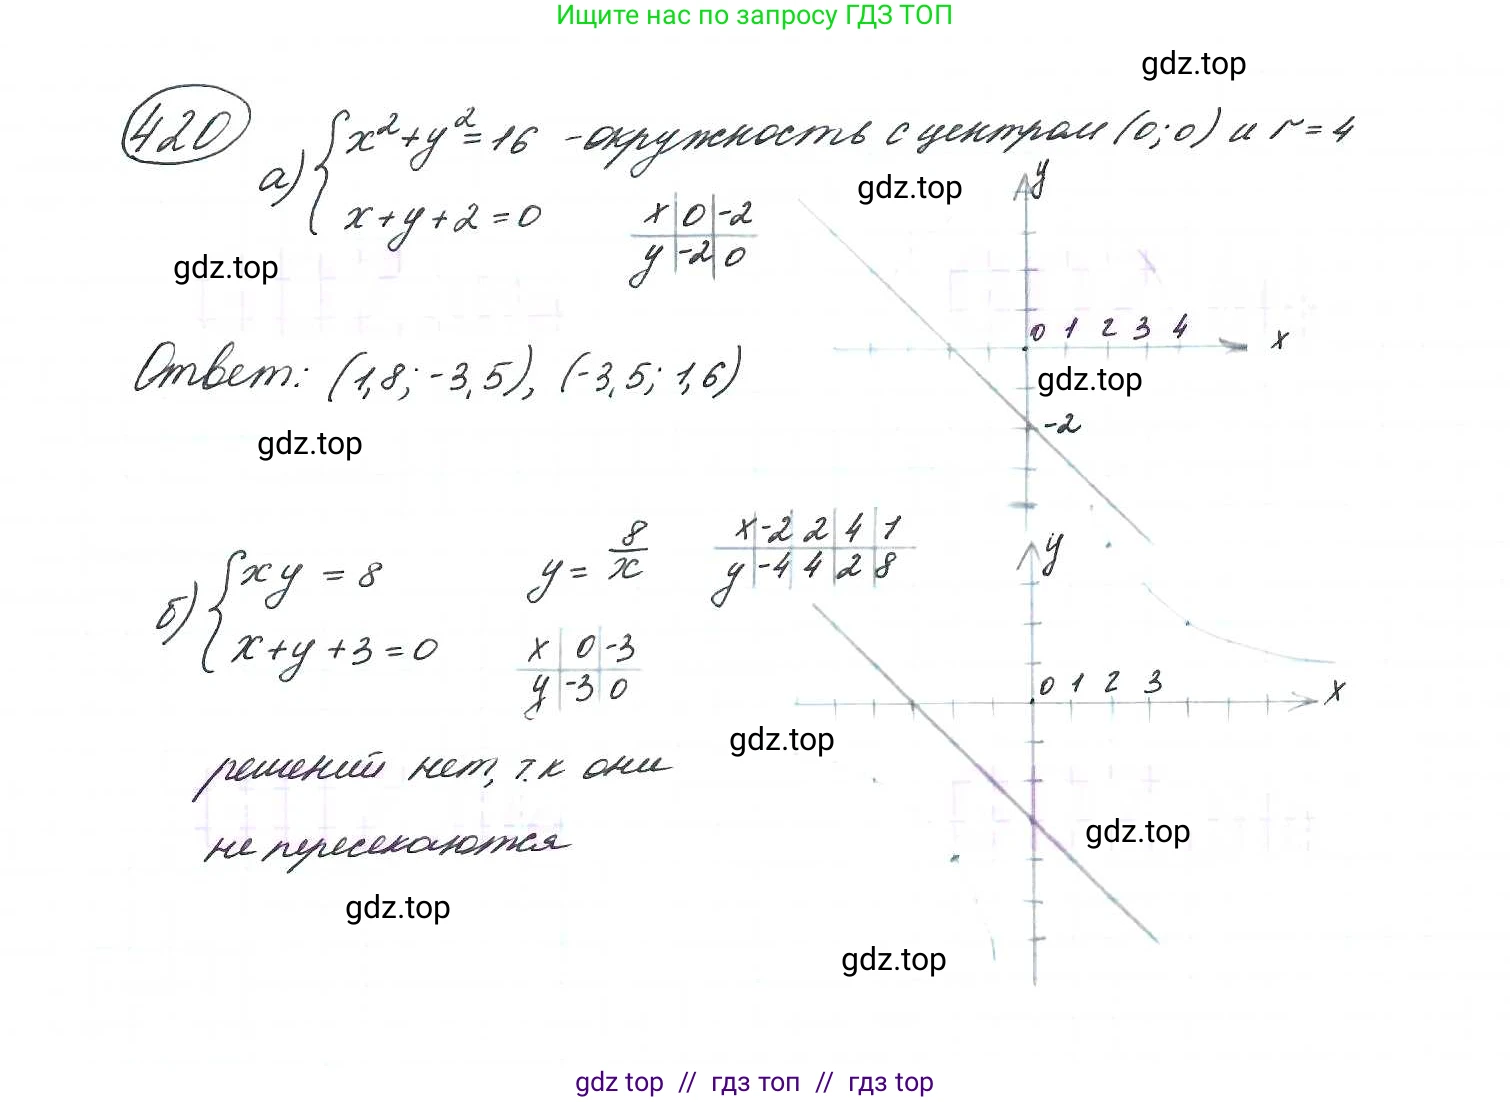 Ищите нас по запросу ГДЗ ТОП
gdz.top
420
а) { x² + y² = 16 - окружность с центром (0; 0) и r = 4
x + y + 2 = 0
x | 0 | -2
y | -2 | 0
gdz.top
y
gdz.top
0 1 2 3 4 x
gdz.top
-2
Ответ: (1,8; -3,5), (-3,5; 1,6)
gdz.top
б) { xy = 8
y = 8/x
x | -2 | 2 | 4 | 1
y | -4 | 4 | 2 | 8
y
x + y + 3 = 0
x | 0 | -3
y | -3 | 0
0 1 2 3 x
gdz.top
решений нет, т.к они
не пересекаются
gdz.top
gdz.top
gdz.top
gdz top // гдз топ // gdz top